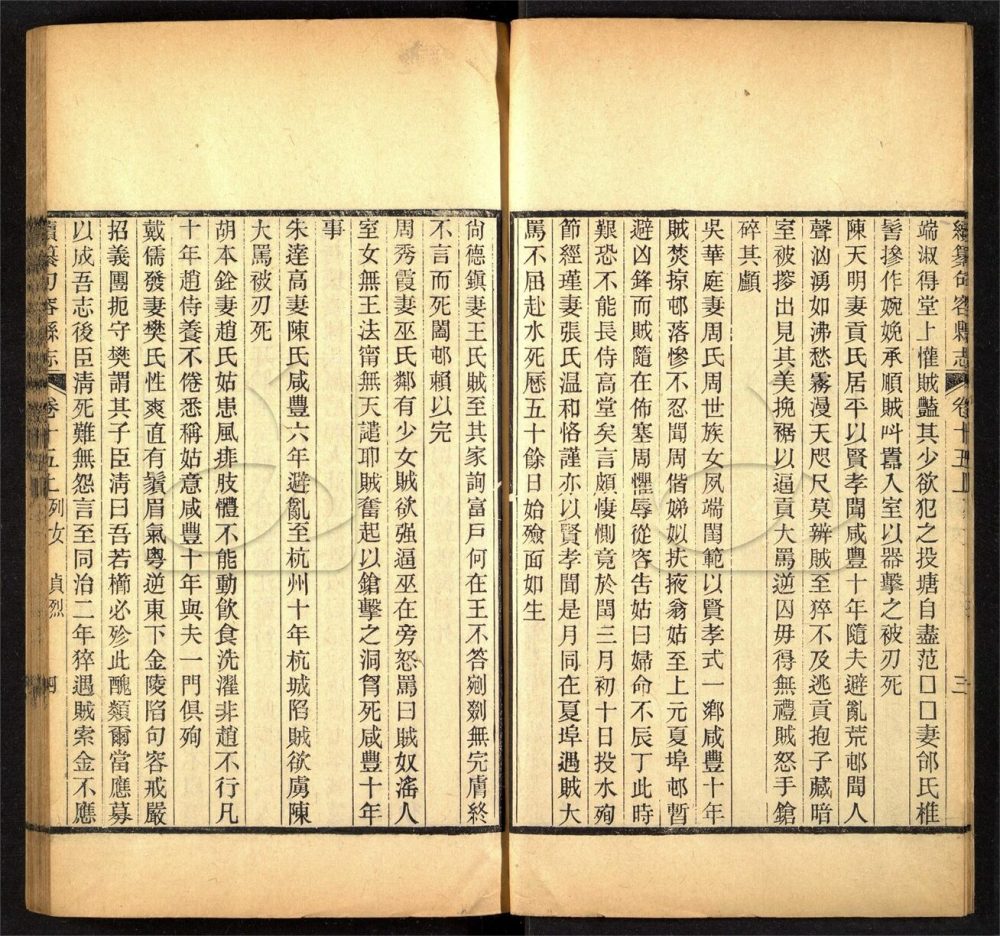 續纂句容縣志 卷十五上 三
端淑得堂上懽賊豔其少欲犯之投塘自盡范口口妻邰氏椎
髻摻作婉娩承順賊呌囂入室以器擊之被刃死
陳天明妻貢氏居平以賢孝聞咸豐十年隨夫避亂荒邨聞人
聲洶湧如沸愁霧漫天咫尺莫辨賊至猝不及逃貢抱子藏暗
室被摉出見其美挽裾以逼貢大罵逆囚毋得無禮賊怒手鎗
碎其顱
吳華庭妻周氏周世族女夙端閨範以賢孝式一鄉咸豐十年
賊焚掠邨落慘不忍聞周偕娣姒扶掖翁姑至上元夏埠邨暫
避凶鋒而賊隨在佈塞周懼辱從容吿姑曰婦命不辰丁此時
艱恐不能長侍高堂矣言頗悽惻竟於閏三月初十日投水殉
節經瑾妻張氏温和恪謹亦以賢孝聞是月同在夏埠遇賊大
罵不屈赴水死歷五十餘日始殮面如生
尙德鎭妻王氏賊至其家詢富戶何在王不答剜劉無完膚終
不言而死闔邨賴以完
周秀霞妻巫氏鄰有少女賊欲强逼巫在旁怒罵曰賊奴滛人
室女無王法甯無天譴耶賊奮起以鎗擊之洞胷死咸豐十年
事
朱達高妻陳氏咸豐六年避亂至杭州十年杭城陷賊欲虜陳
大罵被刃死
胡本銓妻趙氏姑患風痱肢體不能動飲食洗濯非趙不行凡
十年趙侍養不倦悉稱姑意咸豐十年與夫一門俱殉
戴儒發妻樊氏性爽直有鬚眉氣粤逆東下金陵陷句容戒嚴
招義團扼守樊謂其子臣淸曰吾若櫛必殄此醜類爾當應募
以成吾志後臣淸死難無怨言至同治二年猝遇賊索金不應
續纂句容縣志 卷十五上列女 貞烈 四